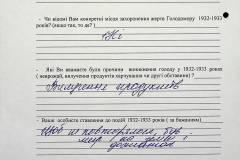 - Чи відомі Вам конкретні місця захоронення жертв Голодомору 1932-1933
років? (якщо так, то де? )
Ні
- Які Ви вважаєте були причини виникнення голоду у 1932-1933 роках
( неврожай, вилучення продуктів харчування чи другі обставини) ?
Вилучення продуктів
- Ваше особисте ставлення до подій 1932-1933 років ( за бажанням)
Щоб не повторялось, був
мир і на землі